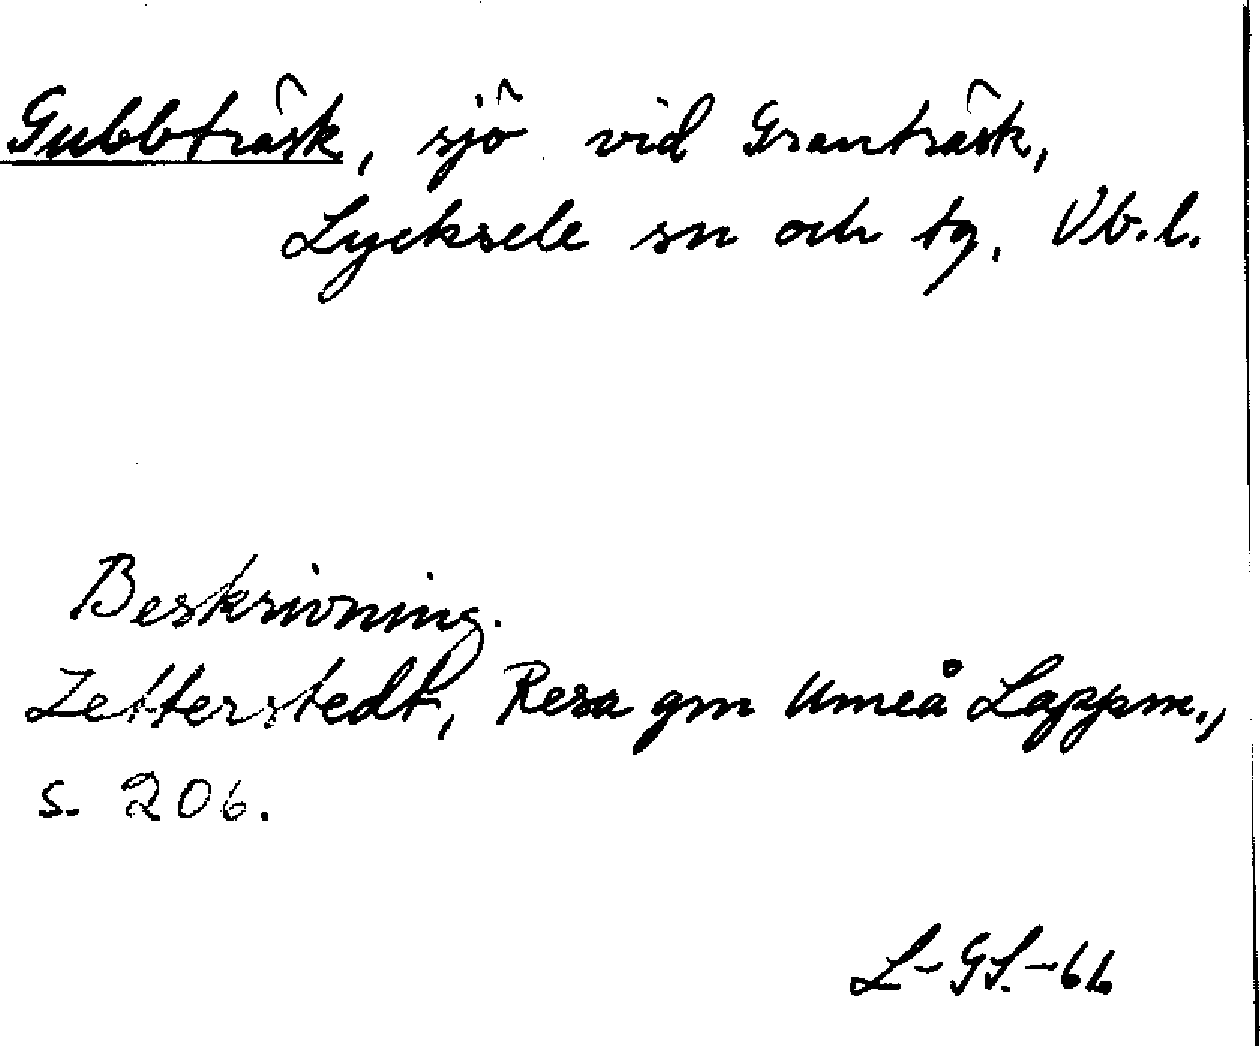 Gubbträsk, sjö vid Granträsk,
Lycksele sn och tg, Vb.l.
Beskrivning.
Zetterstedt, Resa gm Umeå Lappm.,
s. 206.
L-GS.-66